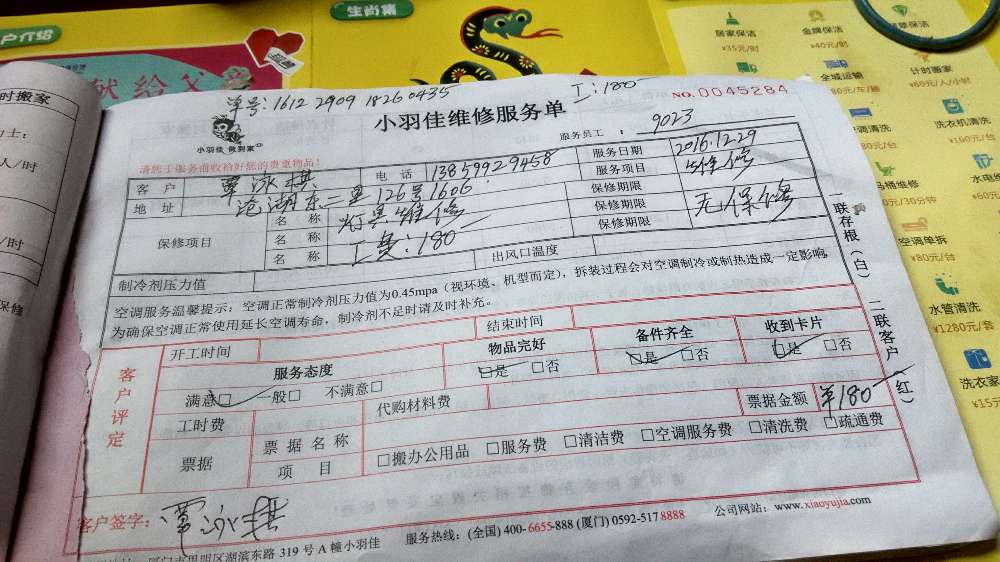 户介绍
生肖集
献给
时搬家
居家保洁
¥35元/时
金牌保洁
¥40元/时
全城运输
计时搬家
空调清洗
洗衣机清洗
马桶维修
空调单拆
¥80元/台
水管清洗
¥1280元/套
洗衣家
单号:1612 2909 18260435
工:180
小羽佳 做到家
小羽佳维修服务单
NO.0045284
请您于服务前收拾好您的贵重物品!
服务员工: 9023
客户 覃泳棋 电话 13859929458 服务日期 2016.12.29
地址 沧湖东二里126号1606 服务项目 维修
保修项目 名称 灯具维修 保修期限 无保修
名称 工费:180 保修期限
名称 保修期限
制冷剂压力值 出风口温度
空调服务温馨提示:空调正常制冷剂压力值为0.45mpa(视环境、机型而定),拆装过程会对空调制冷或制热造成一定影响,
为确保空调正常使用延长空调寿命,制冷剂不足时请及时补充。
一联存根(白) 二联客户(红)
客户评定
开工时间 结束时间
服务态度 物品完好 备件齐全 收到卡片
满意□ 一般□ 不满意□ □是 □否 □是 □否 □是 □否
工时费 代购材料费 票据金额 ¥180
票据 票据名称
项目 □搬办公用品 □服务费 □清洁费 □空调服务费 □清洗费 □疏通费
客户签字: 覃泳棋
服务热线:(全国) 400-6655-888 (厦门) 0592-517 8888 公司网站:www.xiaoyujia.com
厦门市思明区湖滨东路 319 号 A 幢小羽佳